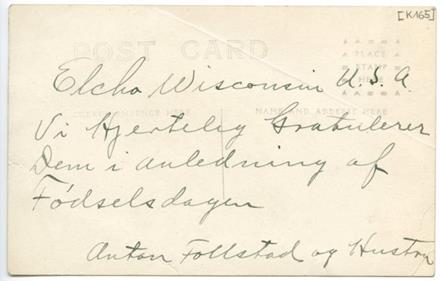 [K165]
POST CARD
PLACE
STAMP
HERE
Elcho Wisconsin U.S.A.
CORRESPONDENCE HERE
NAME AND ADDRESS HERE
Vi Hjertelig Gratulerer
Dem i anledning af
Fødselsdagen
Anton Follstad og Hustru